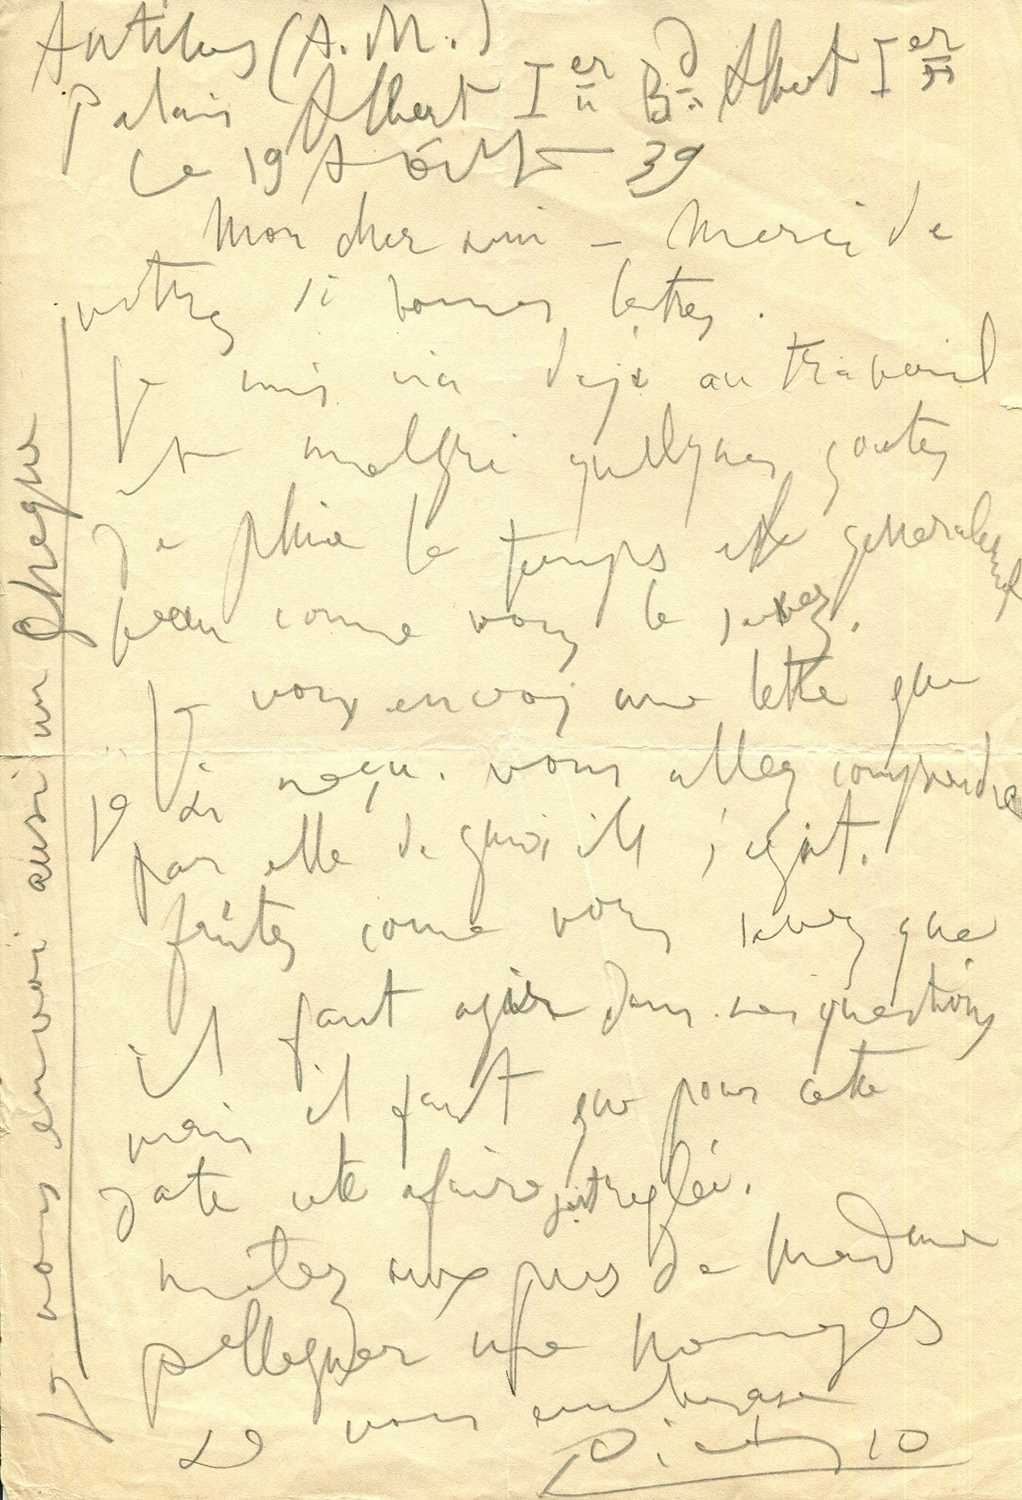 Antibes (A.M.)
Palais Albert Ier Bd Albert Ier
Le 19 Aôut 39
Mon cher ami – Merci de
votres si bonnes letres.
Je suis ici dejà au travail
et malgré quelques goutes
de pluie le temps est generalement
beau come vous le savez.
Je vous envoi une lettre que
je ai reçu. vous allez comprendre
par elle de quoi ill s'agit.
faites come vous savez que
il faut agir dans ses questions
mais il faut que pour cete
date cete afaire soit reglée.
metez aux pies de Madame
pellequer me homages
Je vous embrasse
Picasso
Je vous envoi aussi un cheque